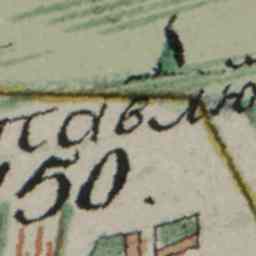 павлю
150.